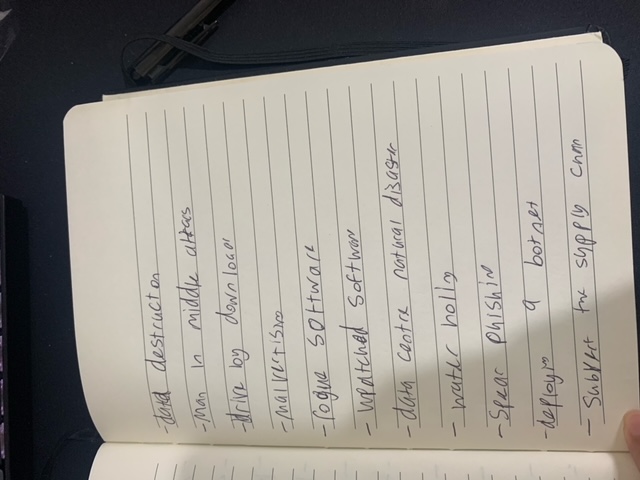 - data destruction
- Man in middle attacs
- drive by download
- malvertising
- rogue software
- unpatched software
- data centre natural disaster
- water holing
- Spear phishing
- deploying a botnet
- Subvert the supply chain